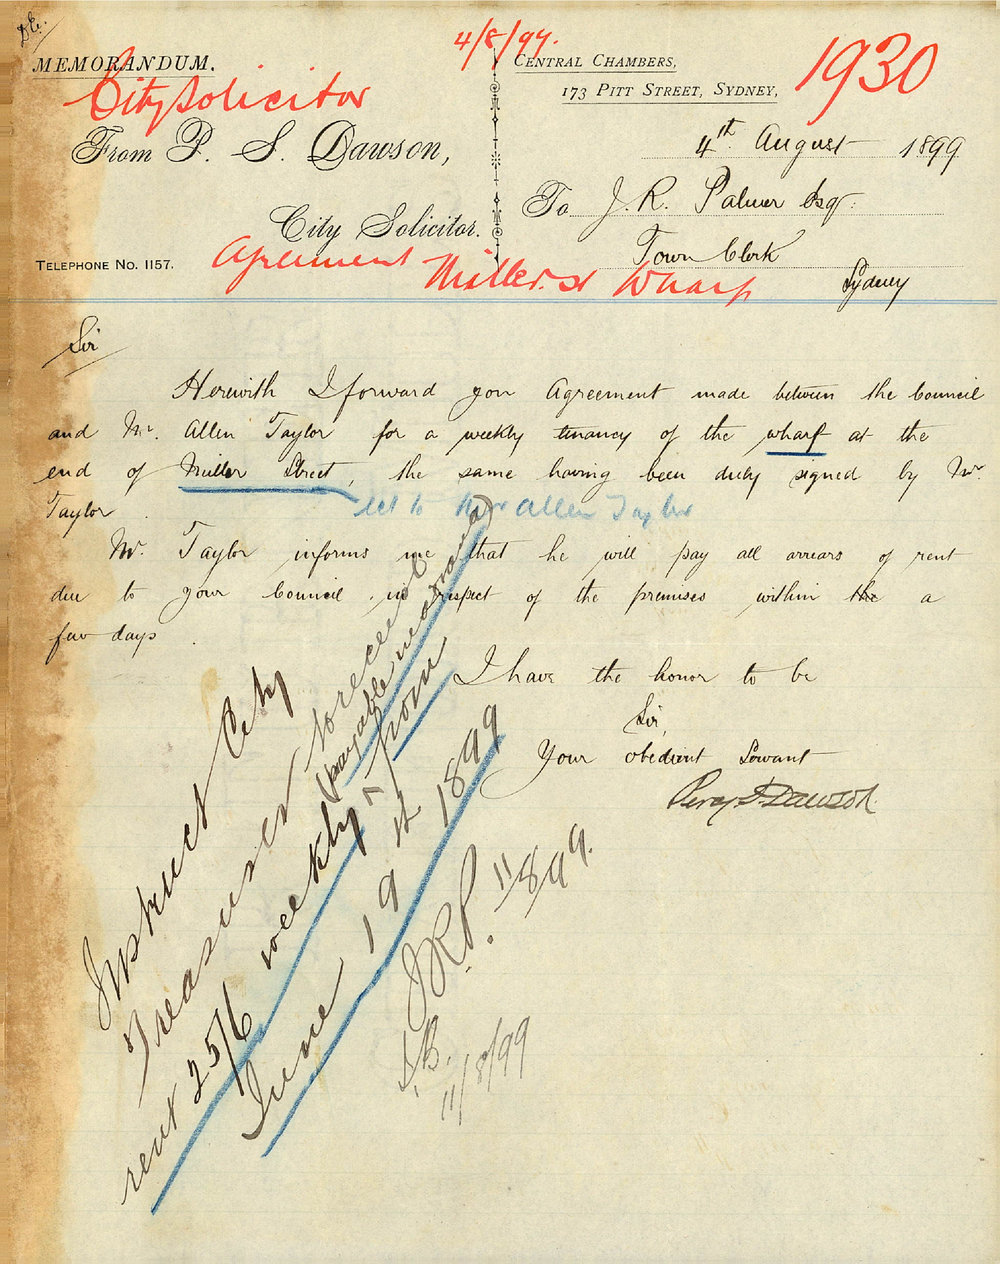 D.C.
4/8/99.
1930
MEMORANDUM.
City Solicitor
CENTRAL CHAMBERS,
173 PITT STREET, SYDNEY,
From P. S. Dawson,
4th August 1899
To J. R. Palmer Esqr.
City Solicitor.
Town Clerk
TELEPHONE NO. 1157.
Sydney
Agreement Miller St Wharf
Sir
Herewith I forward you Agreement made between the Council
and Mr. Allen Taylor for a weekly tenancy of the wharf at the
end of Miller Street, the same having been duly signed by Mr.
Taylor.
let to Mr Allen Taylor
Mr. Taylor informs me that he will pay all arrears of rent
due to your Council in respect of the premises within the a
few days.
I have the honor to be
Sir,
Your obedient Servant
Percy S. Dawson.
Instruct City
Treasurer to receive
(payable in advance)
rent 25/6 weekly from
June 19th 1899
JRP. 11/8/99.
11/8/99